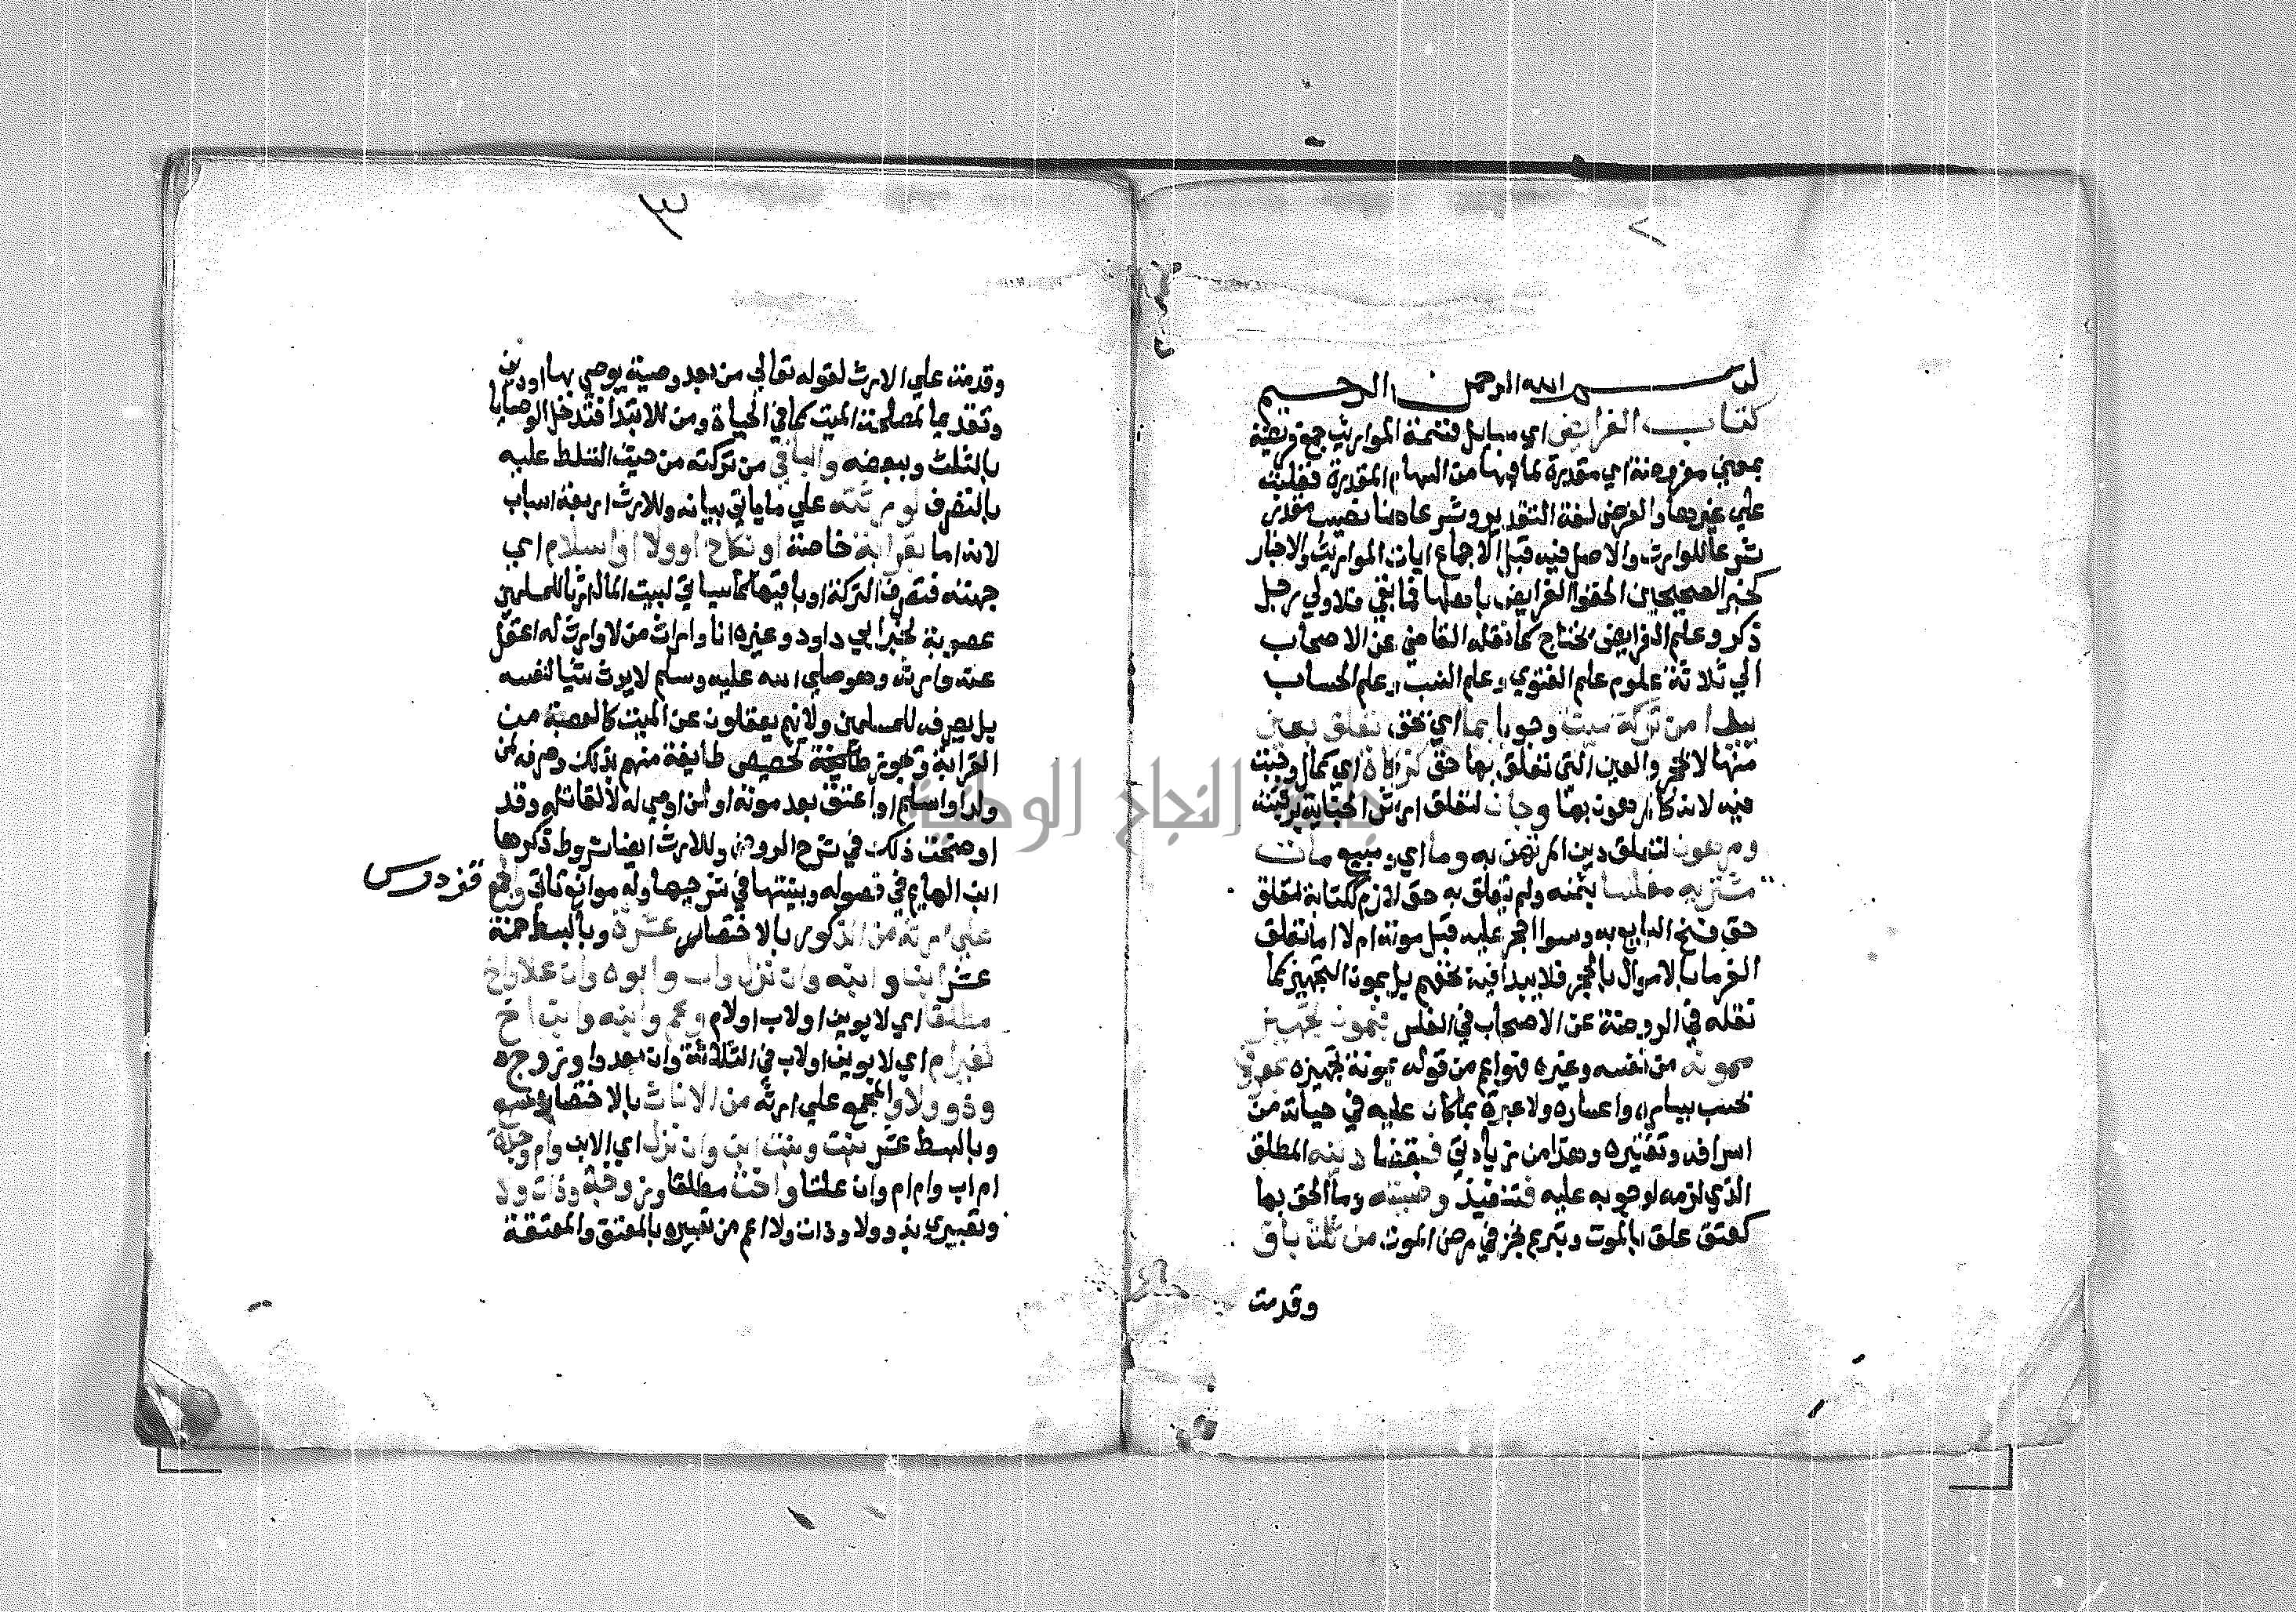 ٢
بسم الله الرحمن الرحيم
كتاب الفرايض اي مسايل قسمة المواريث جمع فريضة
بمعني مفروضة اي مقدرة لما فيها من السهام المقدرة فغلبت
علي غيرها والفرض لغة التقدير وشرعا هنا نصيب مقدر
شرعا للوارث والاصل فيه قبل الاجماع ايات المواريث والاخبار
كخبر الصحيحين الحقوا الفرايض باهلها فما بقي فلاولي رجل
ذكر وعلم الفرايض يحتاج كما نقله القاضي عن الاصحاب
الي ثلاثة علوم علم الفتوي وعلم النسب وعلم الحساب
يبدا من تركة ميت وجوبا بما اي بحق تعلق بعين
منها لا بحجر والعين التي تعلق بها حق كزكاة اي كمال وجبت
فيه لانه كالمرهون بها وجان لتعلق ارش الجناية برقبته
ومرهون لتعلق دين المرتهن به وما اي ومبيع مات
مشتريه مفلسا بثمنه ولم يتعلق به حق لازم ككتابة لتعلق
حق فسخ البايع به وسوا احجر عليه قبل موته ام لا اما تعلق
الغرما بالاموال بالحجر فلا يبدا فيه بحقهم بل بمون التجهيز كما
نقله في الروضة عن الاصحاب في الفلس فبمون تجهيز
ممونه من نفسه وغيره فهو اعم من قوله بمونة تجهيزه بمعروف
بحسب يساره واعساره ولا عبرة بما كان عليه في حياته من
اسرافه وتقتيره وهذا من زيادتي فبقضا دينه المطلق
الذي لزمه لوجوبه عليه فتنفيذ وصيته وما الحق بها
كعتق علق بالموت وتبرع نجز في مرض الموت من ثلث باق
وقدمت
٣
وقدمت علي الارث لقوله تعالي من بعد وصية يوصي بها او دين
وتقديما لمصلحة الميت كما في الحياة ومن للابتدا فتدخل الوصايا
بالثلث وببعضه والباقي من تركته من حيث التسلط عليه
بالتصرف لورثته علي ما ياتي بيانه وللارث اربعة اسباب
لانه اما بقرابة خاصة او نكاح او ولا او اسلام اي
جهته فتصرف التركة او باقيها كما سياتي لبيت المال ارثا للمسلمين
عصوبة لخبر ابي داود وغيره انا وارث من لا وارث له اعقل
عنه وارثه وهو صلي الله عليه وسلم لا يرث شيا لنفسه
بل يصرفه للمسلمين ولانهم يعقلون عن الميت كالعصبة من
القرابة ويجوز تخصيص طايفة منهم بذلك وصرفه لمن
ولد او اسلم او اعتق بعد موته او لمن اوصي له لا لقاتله وقد
اوضحت ذلك في شرح الروض وللارث ايضا شروط ذكرها
ابن الهايم في فصوله وبينتها في شرحيها وله موانع تاتي والمجمع
علي ارثه من الذكور بالاختصار عشرة وبالبسط خمسة
عشر ابن وابنه وان نزل واب وابوه وان علا واخ
مطلقا اي لابوين او لاب او لام وعم وابنه وابن اخ
لغير ام اي لابوين او لاب في الثلاثة وان بعدوا وزوج
وذو ولا والمجمع علي ارثه من الاناث بالاختصار سبع
وبالبسط عشر بنت وبنت ابن وان نزل اي الابن وام وجدة
ام اب وام ام وان علتا واخت مطلقا وزوجة وذات ولا
وتعبيري بذو ولا وذات ولا اعم من تعبيره بالمعتق والمعتقة
جامعة النجاح الوطنية